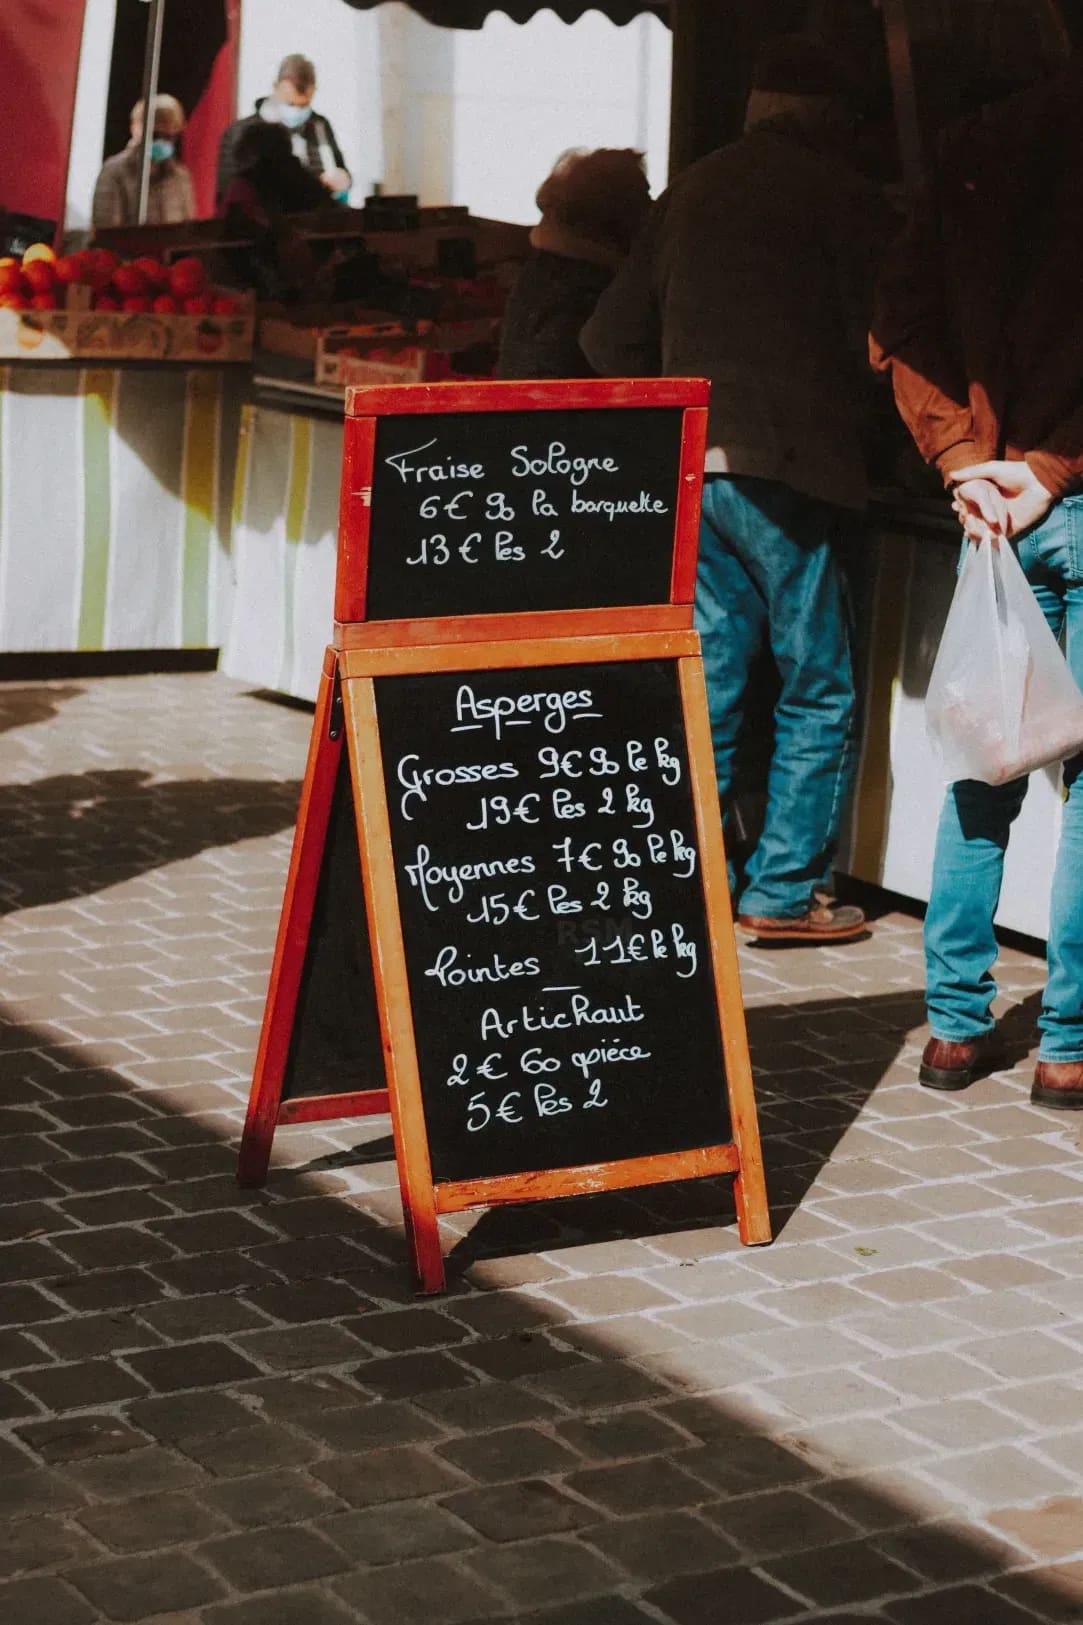 Fraise Sologne
6€90 la barquette
13€ les 2
Asperges
Grosses 9€90 le kg
19€ les 2 kg
Moyennes 7€90 le kg
15€ les 2 kg
Pointes 11€ le kg
Artichaut
2€60 pièce
5€ les 2